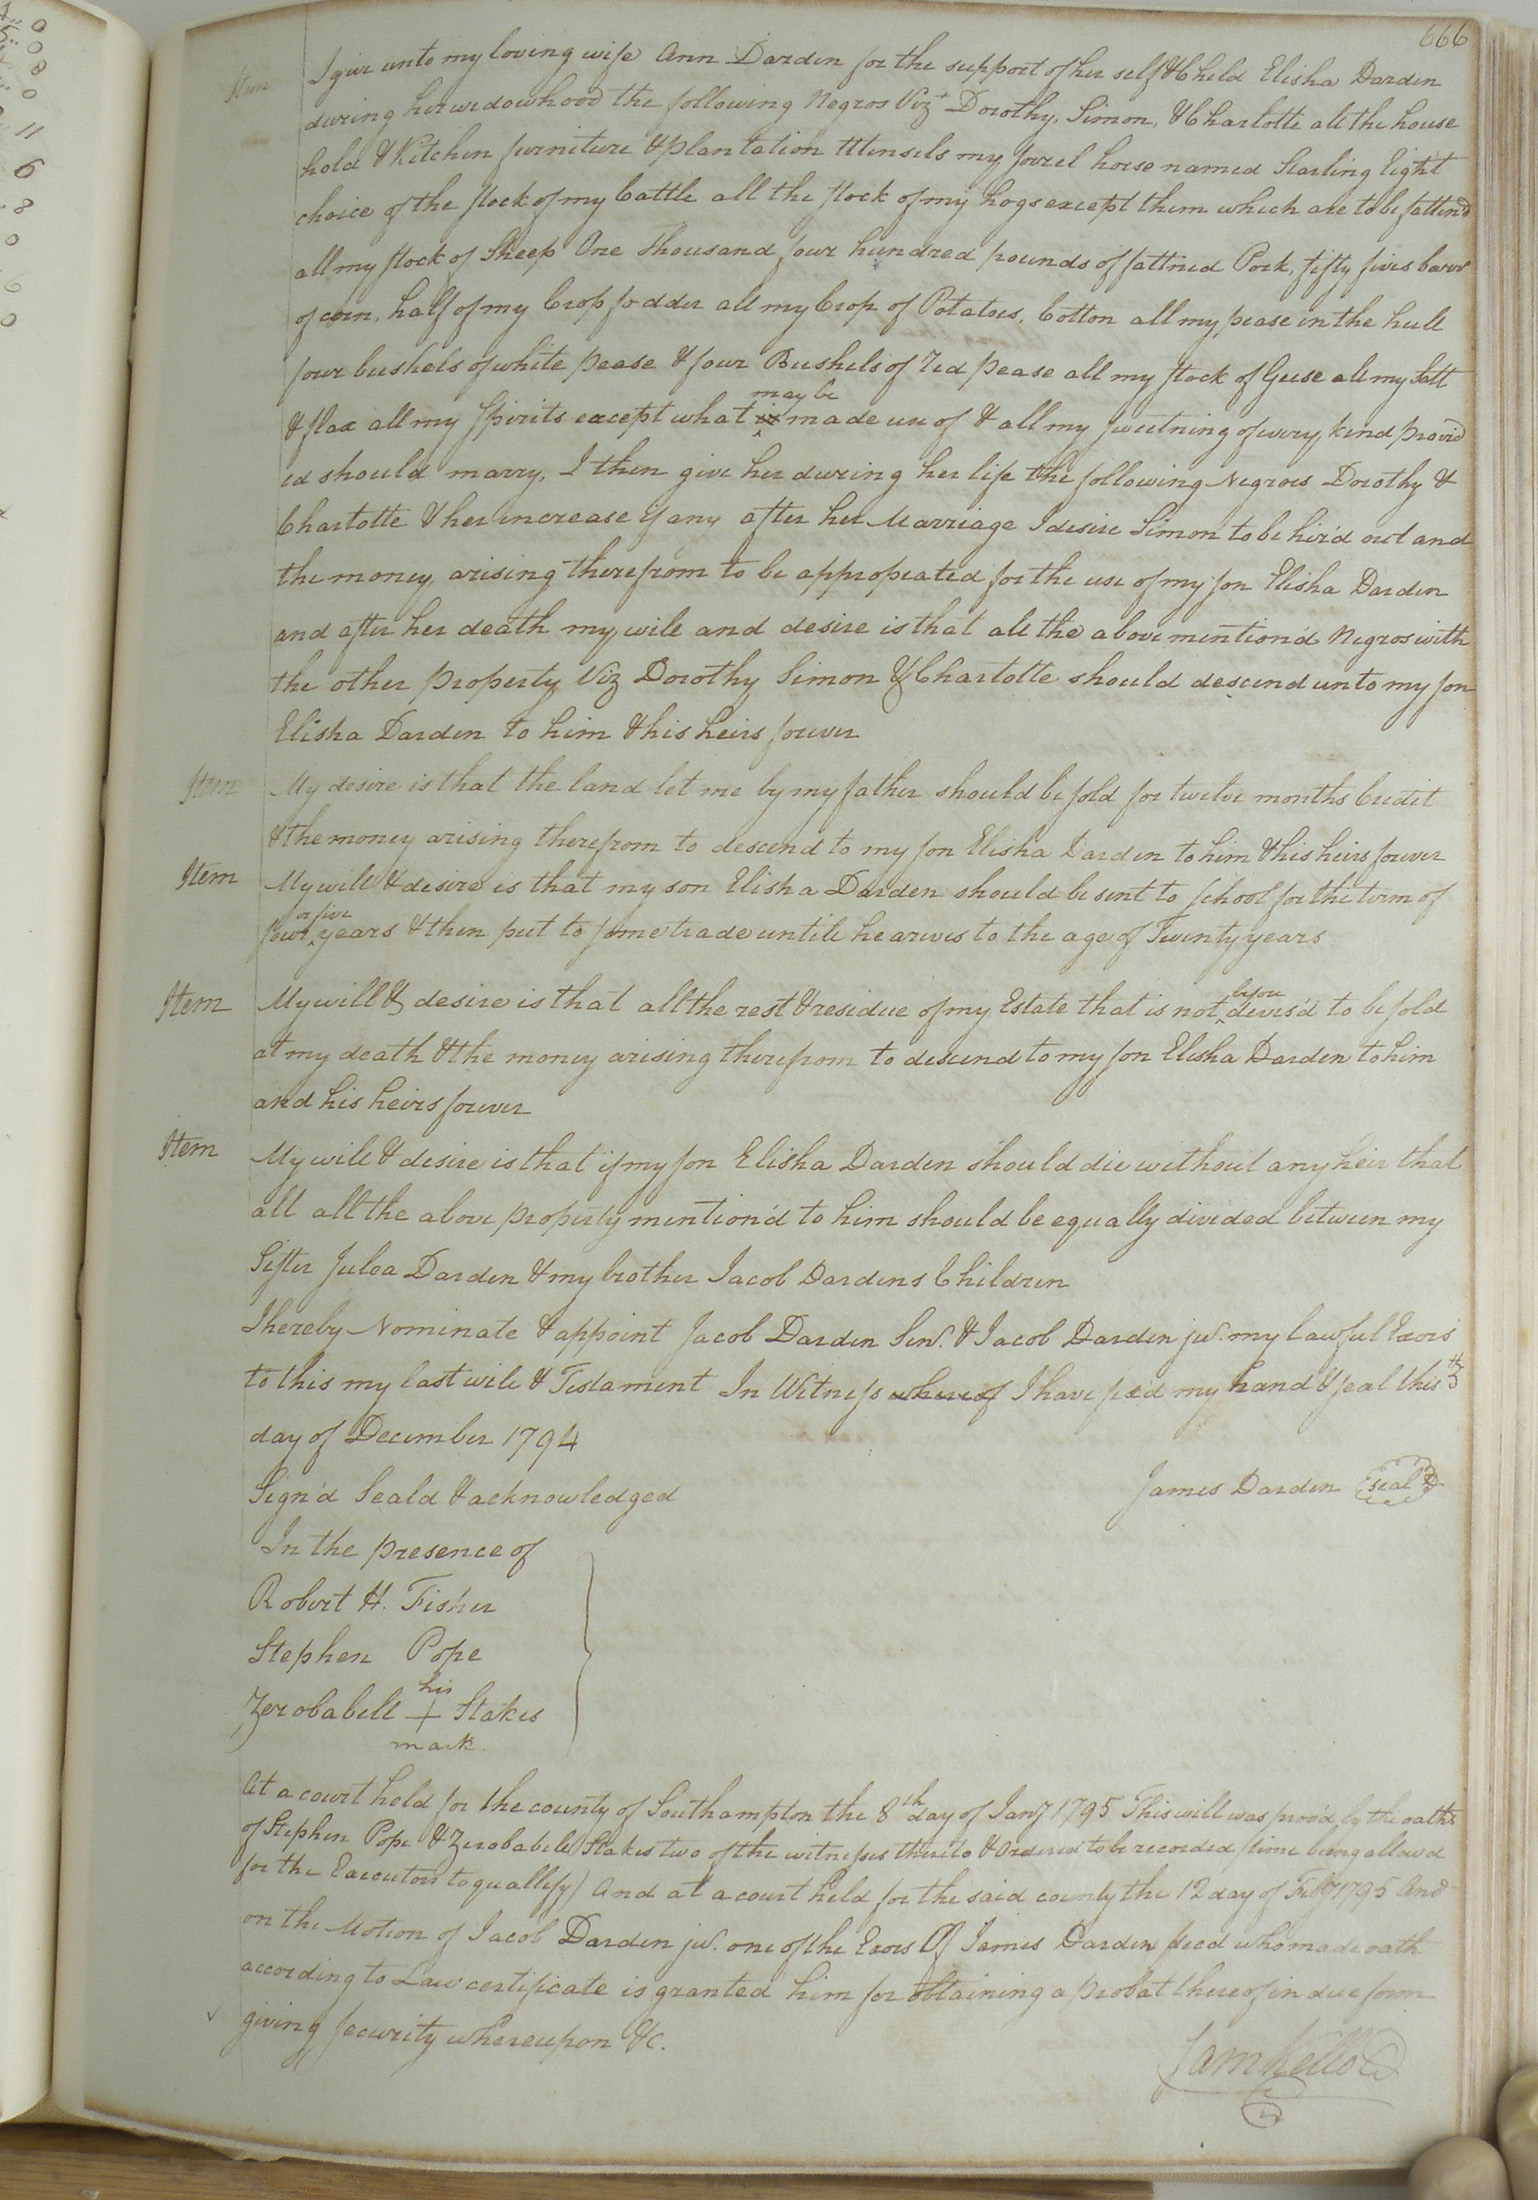 666
Item I give unto my loving wife Ann Darden for the support of her self & Child Elisha Darden
during her widowhood the following Negros Vizt Dorothy, Simon, & Charlotte all the house
hold & Kitchen furniture & plantation Utensels my sorrel horse named Starling Eight
choice of the stock of my Cattle all the stock of my hogs except them which are to be fattend
all my stock of Sheep One thousand four hundred pounds of fattned Pork, fifty fives barr
of corn, half of my Crop fodder all my Crop of Potatoes, Cotton all my pease in the hull
four bushels of white pease & four Bushels of red pease all my stock of Geese all my Salt
may be
& flax all my Spirits except what is made use of & all my sweetning of every kind provid
ed should marry, I then give her during her life the following Negroes Dorothy &
Charlotte & her increase if any after her Marriage I desire Simon to be hir'd out and
the money arising therefrom to be appropeated for the use of my son Elisha Darden
and after her death my will and desire is that all the above mention'd Negros with
the other property Viz Dorothy Simon & Charlotte should descend unto my son
Elisha Darden to him & his heirs forever
Item My desire is that the land let me by my father should be sold for twelve months Credit
& the money arising therefrom to descend to my son Elisha Darden to him & his heirs forever
Item My will & desire is that my son Elisha Darden should be sent to school for the term of
or five
four years & then put to some trade untill he arives to the age of Twenty years
Item My will & desire is that all the rest & residue of my Estate that is not before devis'd to be sold
at my death & the money arising therefrom to descend to my son Elisha Darden to him
and his heirs forever
Item My will & desire is that if my son Elisha Darden should die without any heir that
all all the above property mention'd to him should be equally divided between my
Sister Julea Darden & my brother Jacob Dardens Children
I hereby Nominate & appoint Jacob Darden Senr. & Jacob Darden jur. my lawful Exors
to this my last will & Testament In Witness whereof I have sed my hand & seal this 3
day of December 1794
Sign'd Seald & acknowledged James Darden seal
In the presence of
Robert H. Fisher
Stephen Pope
his
Zerobabell + Stakes
mark.
At a court held for the county of Southampton the 8th day of Jany 1795 This will was prov'd by the oaths
of Stephen Pope & Zerobabell Stakes two of the witnesses thereto & Ordered to be recorded (time being allowd
for the Executors to quallify) And at a court held for the said county the 12 day of Feby 1795 And
on the Motion of Jacob Darden jur. one of the Exors Of James Darden decd who made oath
according to Law certificate is granted him for obtaining a probat thereof in due form
giving security whereupon &c.
Sam Kello